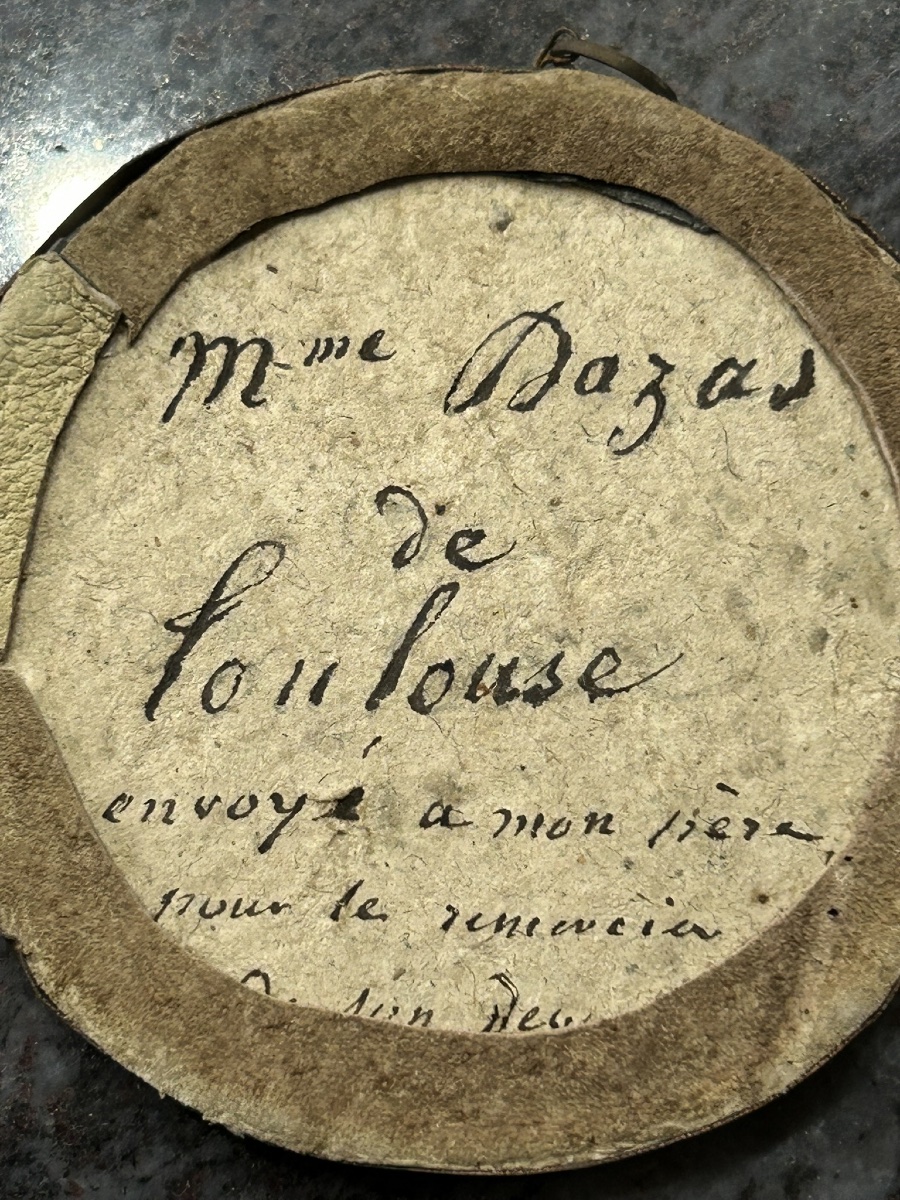 Mme Dazas
de
Toulouse
envoyé a mon père
pour le remercier
de son